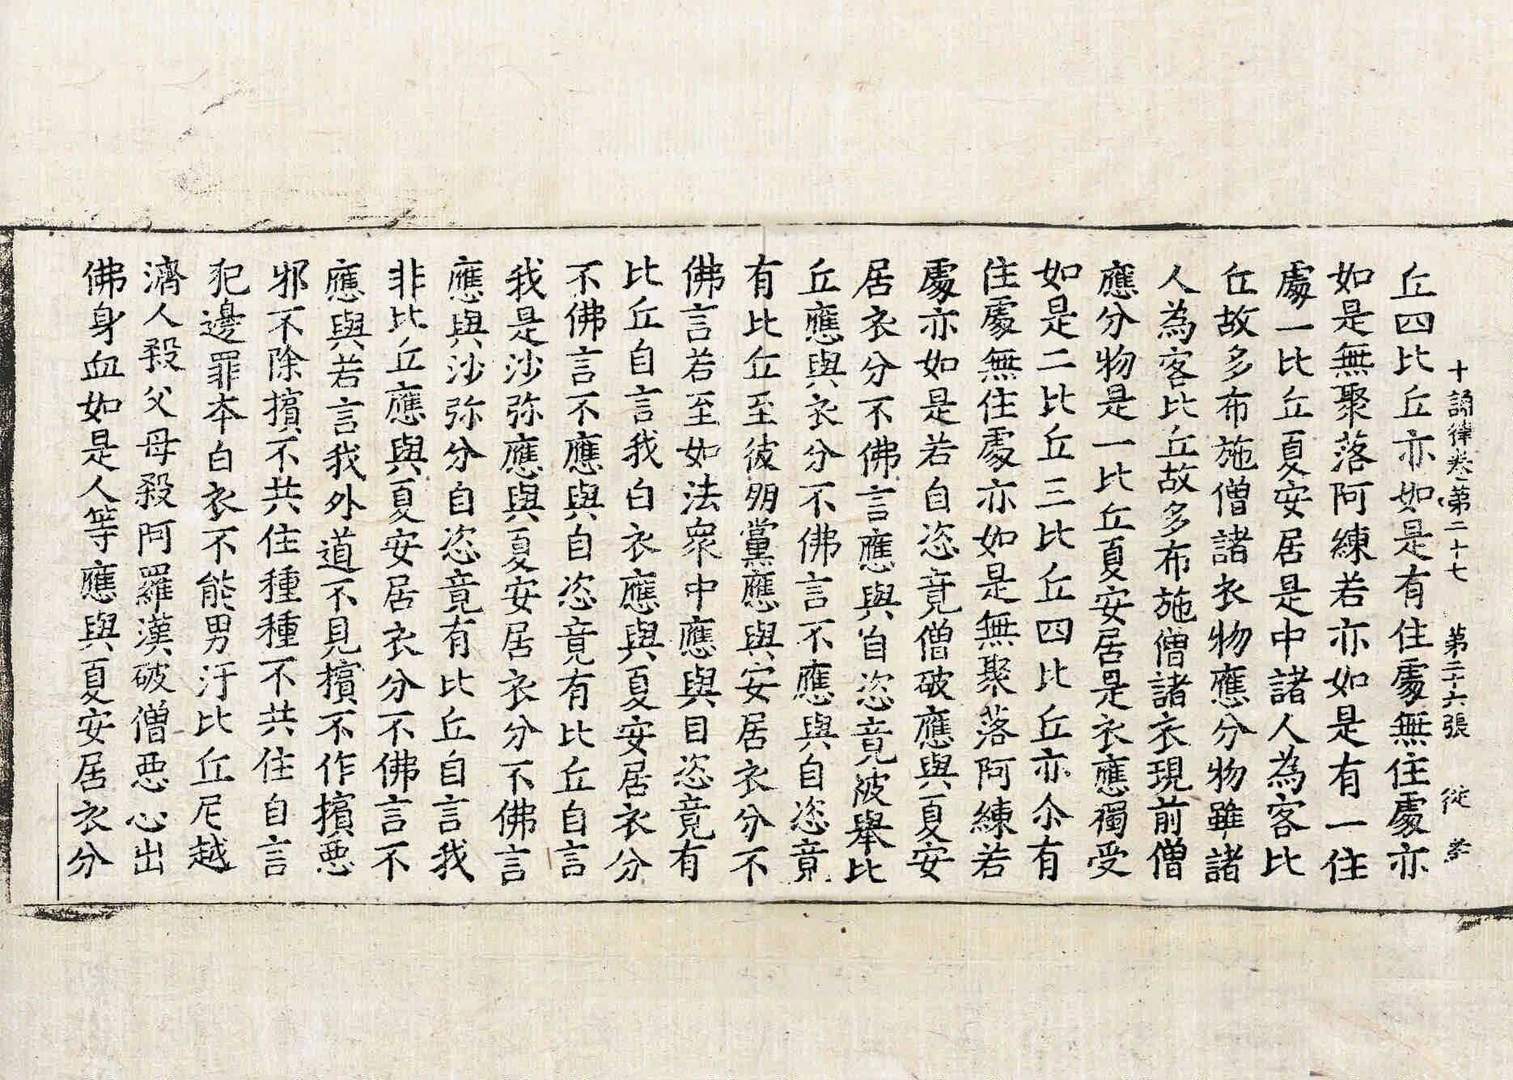 十誦律卷第二十七 第二十六張 従
丘四比丘亦如是有住處無住處亦
如是無聚落阿練若亦如是有一住
處一比丘夏安居是中諸人為客比
丘故多布施僧諸衣物應分物雖諸
人為客比丘故多布施僧諸衣現前僧
應分物是一比丘夏安居是衣應獨受
如是二比丘三比丘四比丘亦尒有
住處無住處亦如是無聚落阿練若
處亦如是若自恣竟僧破應與夏安
居衣分不佛言應與自恣竟被舉比
丘應與衣分不佛言不應與自恣竟
有比丘至彼朋黨應與安居衣分不
佛言若至如法衆中應與自恣竟有
比丘自言我白衣應與夏安居衣分
不佛言不應與自恣竟有比丘自言
我是沙弥應與夏安居衣分不佛言
應與沙弥分自恣竟有比丘自言我
非比丘應與夏安居衣分不佛言不
應與若言我外道不見擯不作擯惡
邪不除擯不共住種種不共住自言
犯邊罪本白衣不能男汙比丘尼越
濟人殺父母殺阿羅漢破僧惡心出
佛身血如是人等應與夏安居衣分